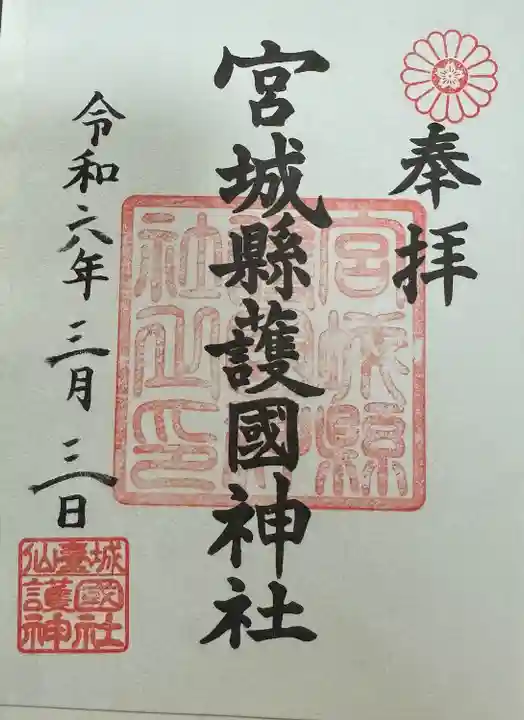 奉拝
宮城縣護國神社
宮城縣
護國神
社之印
令和六年三月三日
仙臺城
護國神社